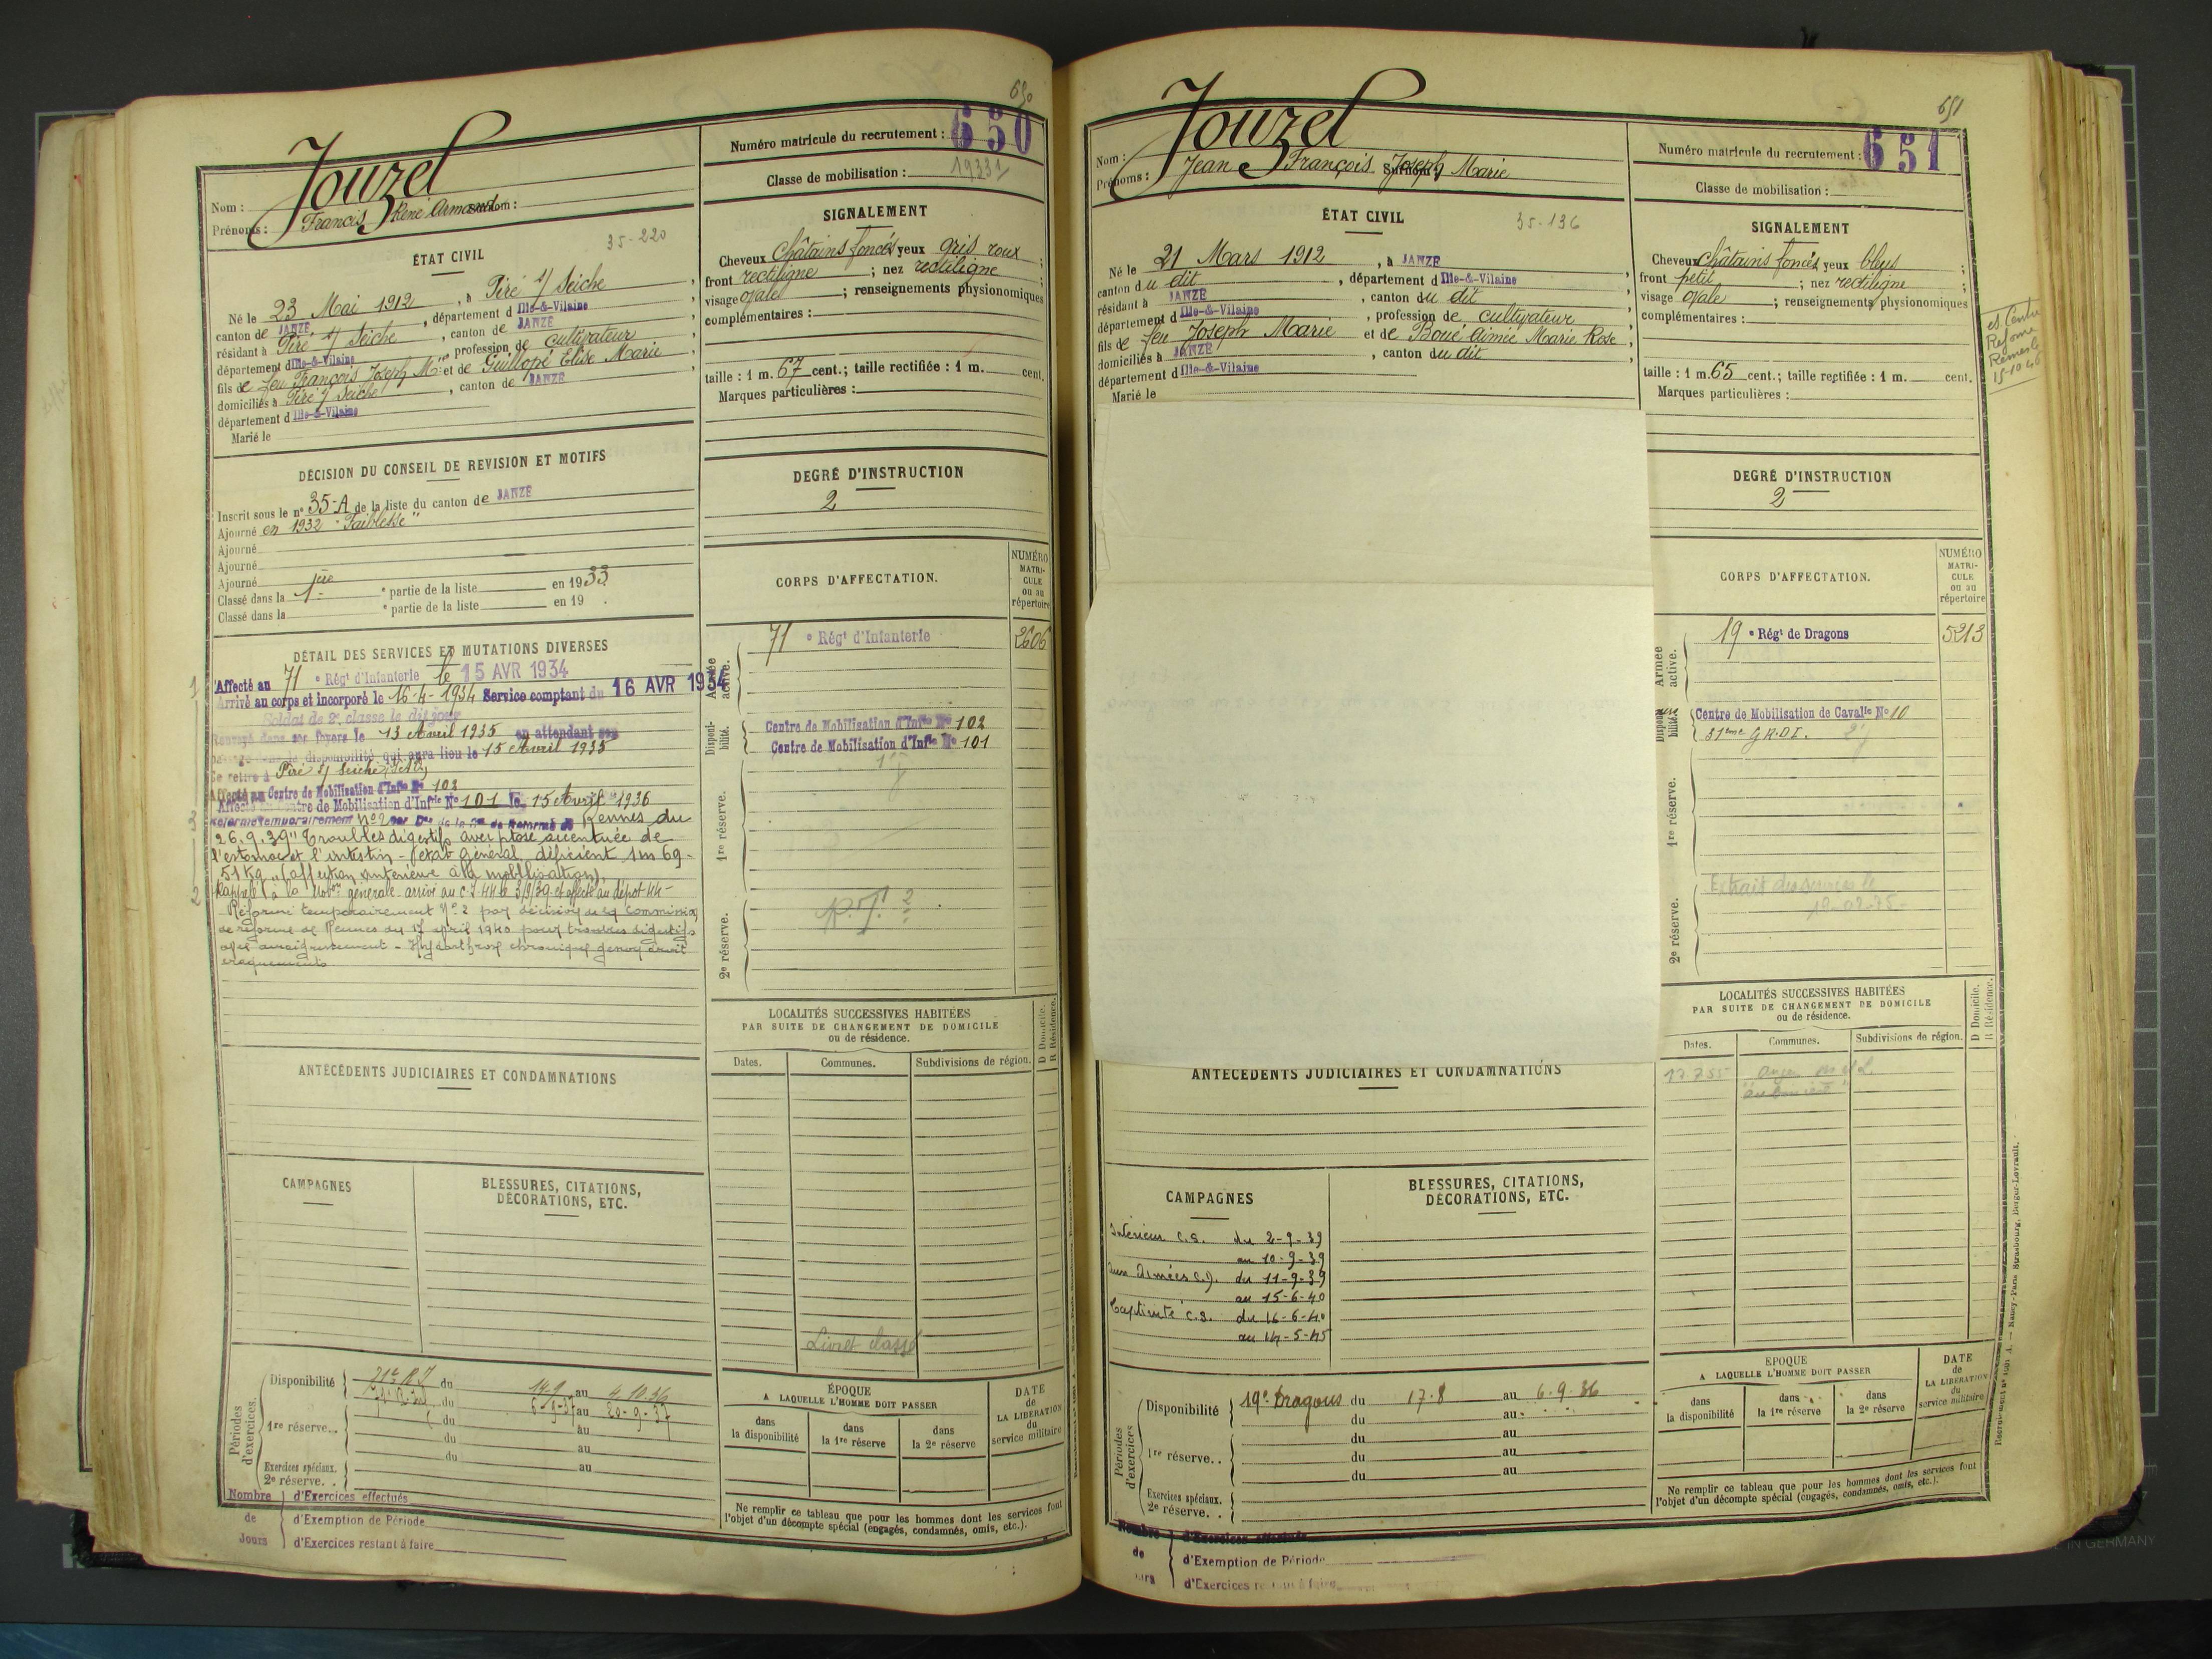 650
Jouzel
Nom :
Prénoms : Francis René Armand Surnom :
Numéro matricule du recrutement : 650
Classe de mobilisation : 1933
ÉTAT CIVIL
35-220
Né le 23 Mai 1912, à Piré s/ Seiche,
canton de JANZÉ, département d Ille-&-Vilaine
résidant à Piré s/ Seiche, canton de JANZÉ
département d Ille-&-Vilaine, profession de cultivateur
fils de feu François Joseph M. et de Guillopé Elise Marie,
domiciliés à Piré s/ Seiche, canton de JANZÉ
département d Ille-&-Vilaine
Marié le
SIGNALEMENT
Cheveux châtains foncés yeux gris roux ;
front rectiligne ; nez rectiligne ;
visage ovale ; renseignements physionomiques
complémentaires :
taille : 1 m. 67 cent.; taille rectifiée : 1 m. cent.
Marques particulières :
DÉCISION DU CONSEIL DE REVISION ET MOTIFS
Inscrit sous le n° 35-A de la liste du canton de JANZÉ
Ajourné en 1932 "Faiblesse"
Ajourné
Ajourné
Ajourné
Classé dans la 1ère partie de la liste en 1933
Classé dans la e partie de la liste en 19 .
DEGRÉ D'INSTRUCTION
2
DÉTAIL DES SERVICES ET MUTATIONS DIVERSES
Affecté au 71 e Régt d'Infanterie le 15 AVR 1934
Arrivé au corps et incorporé le 16-4-1934 Service comptant du 16 AVR 1934
Soldat de 2e classe le dit jour
Renvoyé dans ses foyers le 13 Avril 1935 en attendant son
passage dans la disponibilité qui aura lieu le 15 Avril 1935
Se retire à Piré s/ Seiche
Affecté au Centre de Mobilisation d'Infie No 102
Affecté au Centre de Mobilisation d'Infie No 101 le 15 Avril 1936
Réformé temporairement No 2 Rennes du
26.9.39 "Troubles digestifs avec ptose accentuée de
l'estomac et l'intestin - état général déficient 1m69-
51Kg" (affection antérieure à la mobilisation)
Rappelé à la Mobon générale arrivé au C.I. 44 le 3/9/39 et affecté au dépôt 44-
Réformé temporairement No 2 par décision de la Commission
de réforme de Rennes du 17 april 1940 pour troubles digestifs
avec amaigrissement - Hydarthrose chronique genou droit
craquements
CORPS D'AFFECTATION.
NUMÉRO MATRICULE ou au répertoire
Armée active.
71 e Régt d'Infanterie
2606
Disponibilité.
Centre de Mobilisation d'Infie No 102
Centre de Mobilisation d'Infie No 101
1re réserve.
2e réserve.
LOCALITÉS SUCCESSIVES HABITÉES
PAR SUITE DE CHANGEMENT DE DOMICILE
ou de résidence.
D Domicile.
R Résidence.
Dates.
Communes.
Subdivisions de région.
Livret classé
ANTÉCÉDENTS JUDICIAIRES ET CONDAMNATIONS
CAMPAGNES
BLESSURES, CITATIONS,
DÉCORATIONS, ETC.
Périodes d'exercices.
Disponibilité 71e R.I du 14.9 au 4.10.36
du 6-9-37 au 20-9-37
1re réserve.. du au
du au
du au
Exercices spéciaux.
2e réserve. .
Nombre de Jours
d'Exercices effectués
d'Exemption de Période
d'Exercices restant à faire
ÉPOQUE
A LAQUELLE L'HOMME DOIT PASSER
dans la disponibilité
dans la 1re réserve
dans la 2e réserve
DATE de LA LIBÉRATION du service militaire
Ne remplir ce tableau que pour les hommes dont les services font
l'objet d'un décompte spécial (engagés, condamnés, omis, etc.).
651
Jouzel
Nom :
Prénoms : Jean François Joseph Marie Surnom :
Numéro matricule du recrutement : 651
Classe de mobilisation :
ÉTAT CIVIL
35-136
Né le 21 Mars 1912, à JANZÉ
canton du dit, département d Ille-&-Vilaine
résidant à JANZÉ, canton du dit
département d Ille-&-Vilaine, profession de cultivateur
fils de feu Joseph Marie et de Boué Aimée Marie Rose,
domiciliés à JANZÉ, canton du dit
département d Ille-&-Vilaine
Marié le
SIGNALEMENT
Cheveux châtains foncés yeux bleus ;
front petit ; nez rectiligne ;
visage ovale ; renseignements physionomiques
complémentaires :
taille : 1 m. 65 cent.; taille rectifiée : 1 m. cent.
Marques particulières :
Centre
Reforme
Rennes le
15-10-46
DEGRÉ D'INSTRUCTION
2
CORPS D'AFFECTATION.
NUMÉRO MATRICULE ou au répertoire
Armée active.
19 e Régt de Dragons
5213
Disponibilité.
Centre de Mobilisation de Cavalie No 10
31ème G.R.D.I.
1re réserve.
2e réserve.
Extrait des services le
LOCALITÉS SUCCESSIVES HABITÉES
PAR SUITE DE CHANGEMENT DE DOMICILE
ou de résidence.
D Domicile.
R Résidence.
Dates.
Communes.
Subdivisions de région.
17.7.55
ANTÉCÉDENTS JUDICIAIRES ET CONDAMNATIONS
CAMPAGNES
BLESSURES, CITATIONS,
DÉCORATIONS, ETC.
Intérieur C.S. du 2-9-39
au 10-9-39
aux Armées C.D. du 11-9-39
au 15-6-40
Captivité C.S. du 16-6-40
au 14-5-45
Périodes d'exercices
Disponibilité 19e Dragons du 17.8 au 6.9.36
du au
1re réserve. . du au
du au
du au
Exercices spéciaux.
2e réserve. .
Nombre de Jours
d'Exercices effectués
d'Exemption de Période
d'Exercices restant à faire
ÉPOQUE
A LAQUELLE L'HOMME DOIT PASSER
dans la disponibilité
dans la 1re réserve
dans la 2e réserve
DATE de LA LIBÉRATION du service militaire
Ne remplir ce tableau que pour les hommes dont les services font
l'objet d'un décompte spécial (engagés, condamnés, omis, etc.).
Nancy-Paris Strasbourg, Berger-Levrault.
IN GERMANY